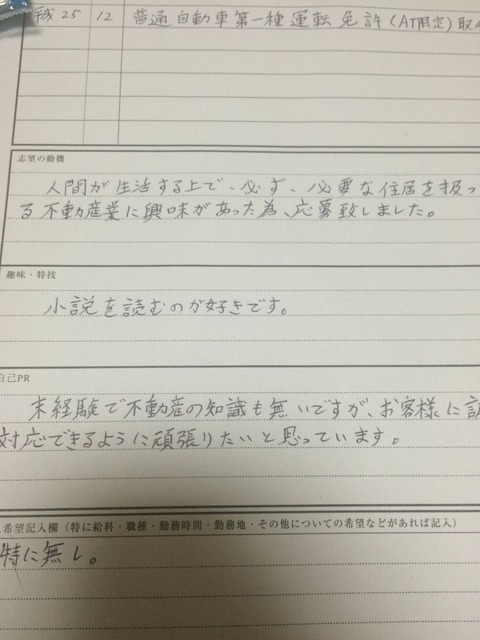 成 25 12 普通自動車第一種運転免許(AT限定)取
志望の動機
人間が生活する上で、必ず、必要な住居を扱っ
る不動産業に興味があった為、応募致しました。
趣味・特技
小説を読むのが好きです。
自己PR
未経験で不動産の知識も無いですが、お客様に
対応できるように頑張りたいと思っています。
希望記入欄(特に給料・職種・勤務時間・勤務地・その他についての希望などがあれば記入)
特に無し。